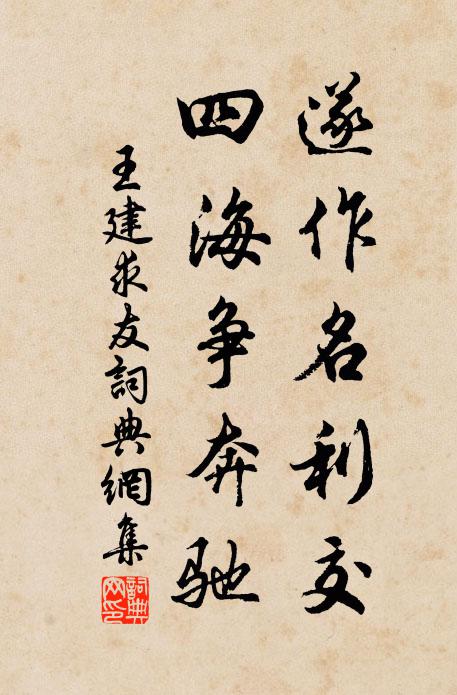 遂作名利交
四海争奔驰
王建求友詞典網集
詞典
网印